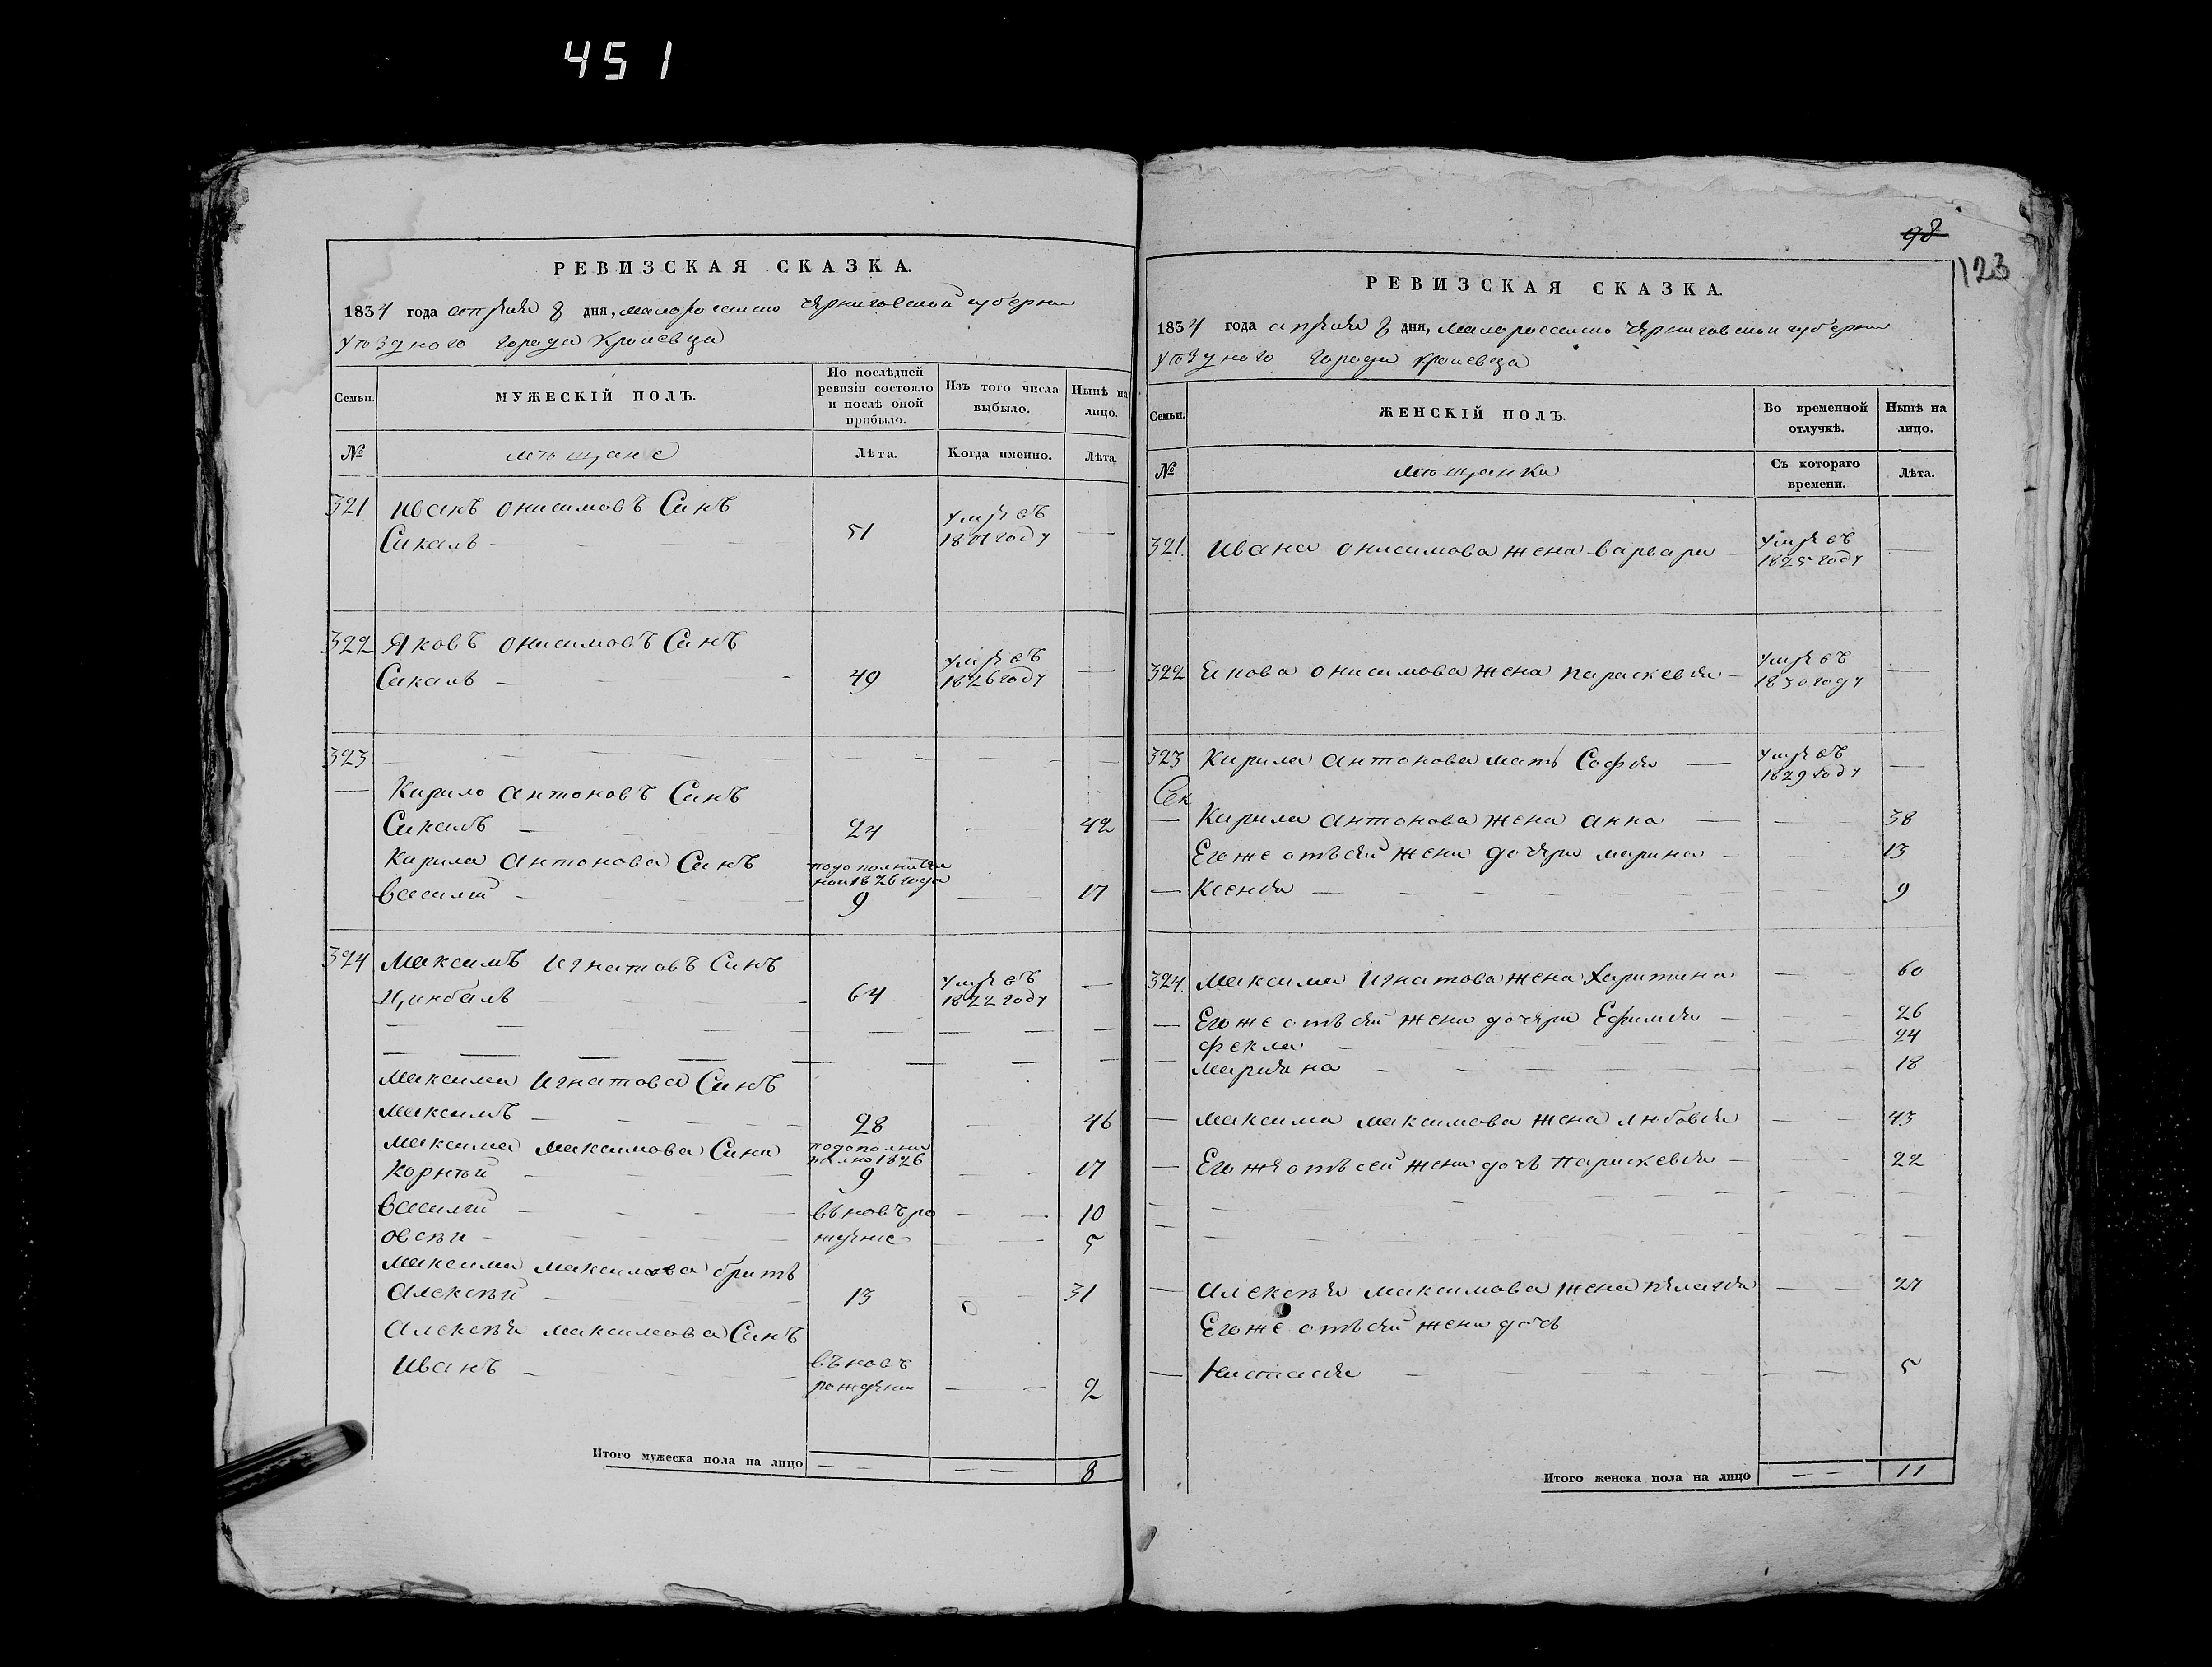 451
РЕВИЗСКАЯ СКАЗКА.
1834 года апреля 8 дня, малороссийско Черниговской губернии
уѣздного города Кролевца
Семьи. МУЖЕСКІЙ ПОЛЪ. По послѣдней ревизіи состояло и послѣ оной прибыло. Изъ того числа выбыло. Нынѣ на лицо.
№ мѣщане Лѣта. Когда именно. Лѣта.
321 Иванъ Онисимовъ Синъ
Сикалъ - 51 умре въ 18 году —
322 Яковъ Онисимовъ Синъ
Сикалъ - 49 умре въ 1826 году —
323 — — —
— Кирило Антоновъ Синъ
Сикалъ — 24 — 42
Кирила Антонова Синъ
Василий - 9 — 17
324 Максимъ Игнатовъ Синъ
Цимбалъ - 64 умре въ 1822 году —
— — —
— — —
Максима Игнатова Синъ
Максимъ — 28 — 46
Максима Максимова Сини
Корнѣй — 9 — 17
Василий — въновъ ро — 10
Овсѣи — ждение — 5
Максима Максимова братъ
Алексѣй — 13 — 31
Алексѣя Максимова Синъ
Иванъ — въновъ
рождении — 2
Итого мужеска пола на лицо — — 8
98
123
РЕВИЗСКАЯ СКАЗКА.
1834 года апреля 8 дня, малороссийско Черниговской губернии
уѣздного города Кролевца
Семьи. ЖЕНСКІЙ ПОЛЪ. Во временной отлучкѣ. Нынѣ на лицо.
№ мѣщанки Съ котораго времени. Лѣта.
321. Ивана Онисимова жена Варвара — умре въ 1825 году —
322 Якова Онисимова жена Параскевия — умре въ 1830 году —
323 Кирила Антонова мать София — умре въ 1829 году —
Сек
— Кирила Антонова жена Анна — 38
Его же отъ сей жени дочери Марина — 13
— Ксения — 9
324. Максима Игнатова жена Харитина — 60
— Его же отъ сей жени дочери Ефимия — 26
Фекла — 24
— Марияна — 18
— Максима Максимова жена Любовия — 43
— Его же отъ сей жени дочь Параскевия — 22
— — —
— — —
— Алексѣя Максимова жена Пелагия — 27
Его же отъ сей жени дочь
— Настасия — 5
Итого женска пола на лицо — — 11